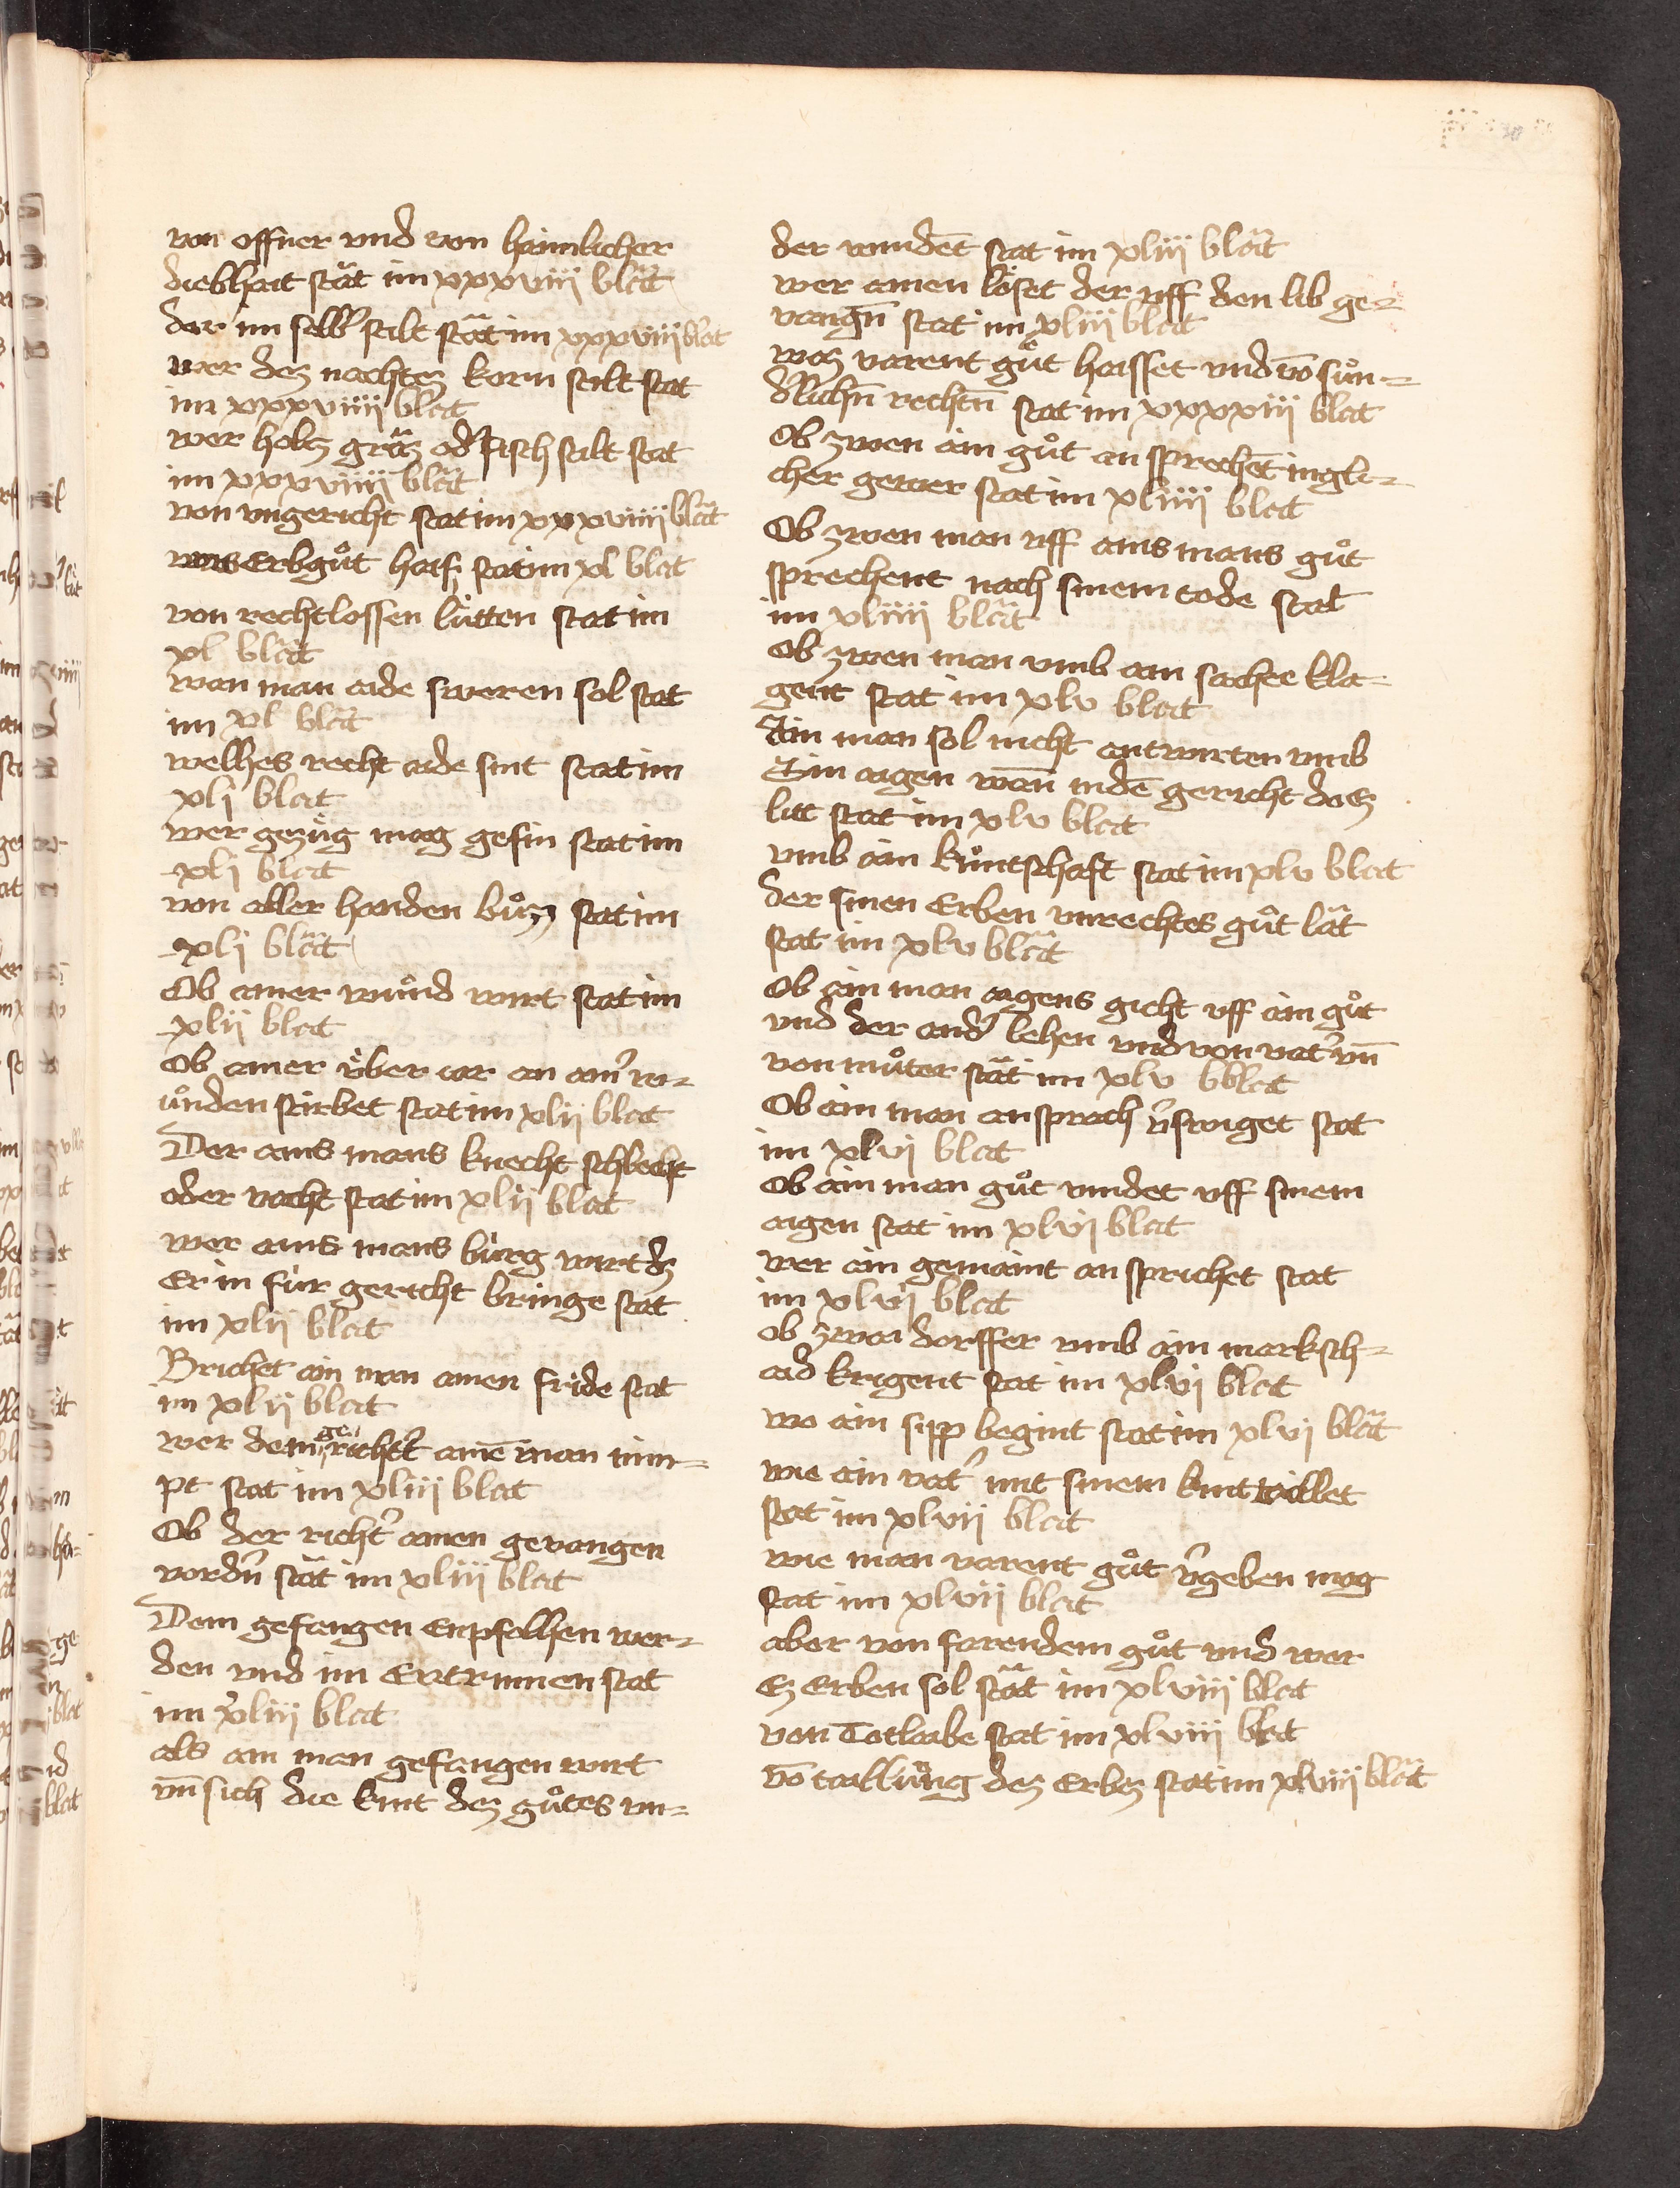 von offner vnd von haimlicher
diebhait stät im xxxviii blät
der im selbͤ stilt stät im xxxviiii blat
wer dez nachtez korn stilt stat
im xxxviiii blat
wer holtz gräz od͛ fisch stilt stat
im xxxviiii blät
von vngericht stat im xxxviiii blät
was Erbgůt haiſ stat im xl blat
von rechtlossen lütten stat im
xl blät
wan man aide sweren sol stat
im xl blät
welhes recht aide sint stat im
xli blat
wer gezüg mag gesin stat im
xlj blat
von aller handen bůzz stat im
xlj blät
Ob ainer wůnd wirt stat im
xlij blat
Ob ainer über iar an ain͛ w-
ůnden stirbet stat im xlij blat
Der ains mans knecht schlecht
oder vacht stat im xlij blat
wer ains mans bürg wirt dz
Er in für gericht bringe stat
im xlij blat
Brichet ain man ainen fride stat
im xlij blat
wer dem gericht͛ ainē man nim-
pt stat im xliij blat
Ob der richt͛ ainen gevangen
vordn̄ stät im xliij blat
Dem gefangen Enpfolhen wer-
den vnd im Entrinnen stat
im xliij blat
als ain man gefangen wirt
vn̄ sich die kint dez gůtes vn-
der windēt stat im xliij blät
wer ainen löset der vff den lib ge-
vangn̄ stat im xliij blat
waz varent gůt haisset vnd vō sůn-
d͛lichn̄ rechtn̄ stat im xxxxiij blat
Ob zwen ain gůt an sprechēt in gli-
cher gewer stat im xliiij blat
Ob zwen man vff ains mans gůt
sprechent nach sinem tode stat
im xliiij blät
Ob zwen man vmb ain sachee kla-
gent stat im xlv blat
Ain man sol nicht antwurten vmb
Sin aigen wān in dē gericht da Ez
lit stat im xlv blat
vmb ain kůntschaft stat im xlv blat
der sinen Erben vnrechtes gůt lät
stat im xlv blät
Ob ain man aigens gicht vff ain gůt
vnd der and͛ lehen vnd von vat͛ vn̄
von můter stät im xlv bblat
Ob ain man ansprach v͛swiget stat
im xlvj blat
Ob ain man gůt vindet vff sinem
aigen stat im xlvj blat
wer ain gemaint an sprichet stat
im xlvj blat
ob zwai dorffer vmb ain marksch-
aid krigent stat im xlvj blat
wo ain sipp begint stat im xlvj blät
wie ain vat͛ mit sinem kint taillet
stat im xlvij blat
wie man varent gůt v͛geben mag
stat im xlvij blat
aber von farendem gůt vnd wer
Ez Erben sol stät im xlviij blat
von Totlaibe stat im xlviij blat
vō taillůng dez Erbez stat im xlviij blät